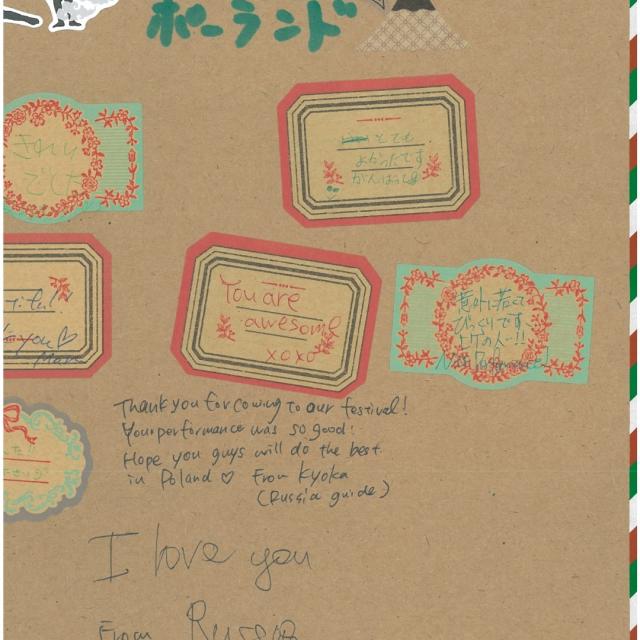 ポーランド
きれい
でした
とても
よかったです
がんばって
You are
awesome
xoxo
意外に若くて
びっくりです
you♡
Thank you for coming to our festival!
Your performance was so good!
Hope you guys will do the best
in Poland ♡ From Kyoka
(Russia guide)
I love you
From Russia